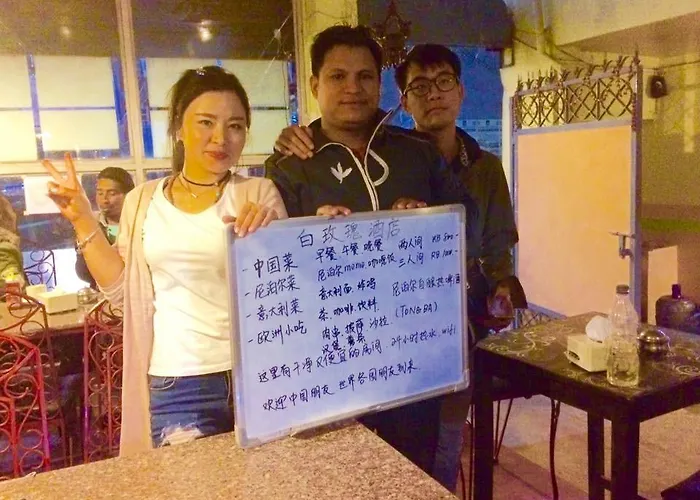 白玫瑰酒店
- 中国菜 早餐 午餐 晚餐 两人间 RB 800.-
- 尼泊尔菜 尼泊尔momo 咖喱饭 三人间 RB 1000.-
- 意大利菜 意大利面 炸鸡
- 欧洲小吃 茶.咖啡.饮料. (TONGBA)
肉串 披萨 沙拉.
汉堡 薯条
这里有干净又便宜的房间 24小时热水. wifi
欢迎中国朋友 世界各国朋友到来.